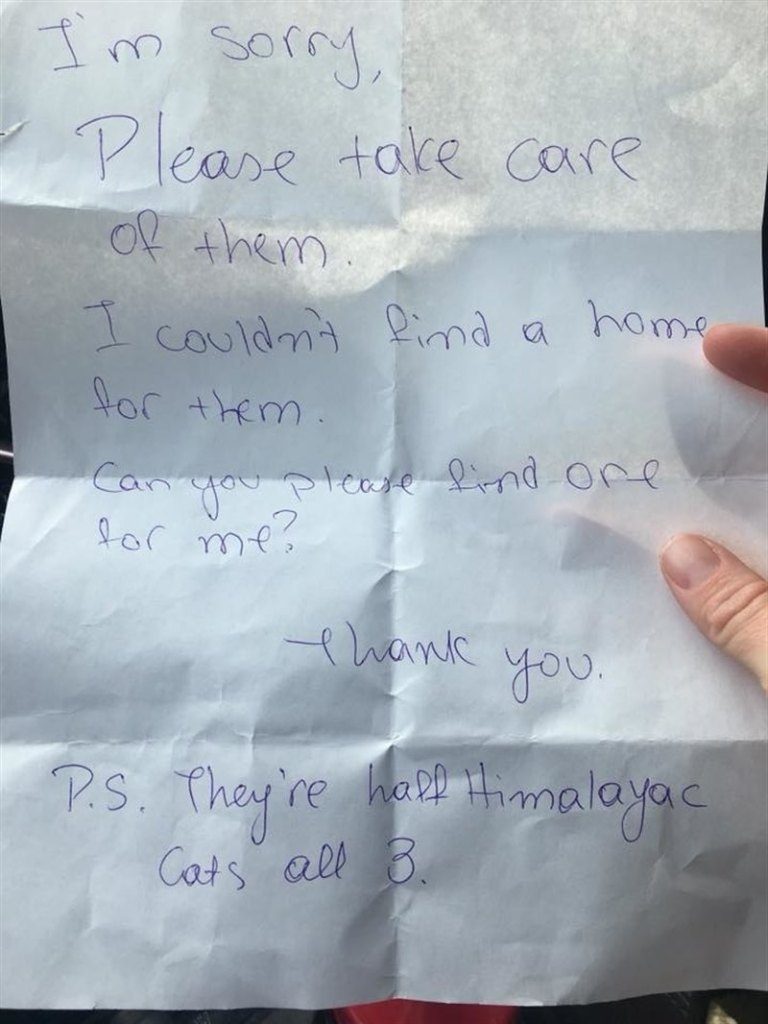 I'm sorry,
Please take care
of them.
I couldn't find a home
for them.
Can you please find one
for me?
Thank you.
P.S. They're half Himalayac
Cats all 3.